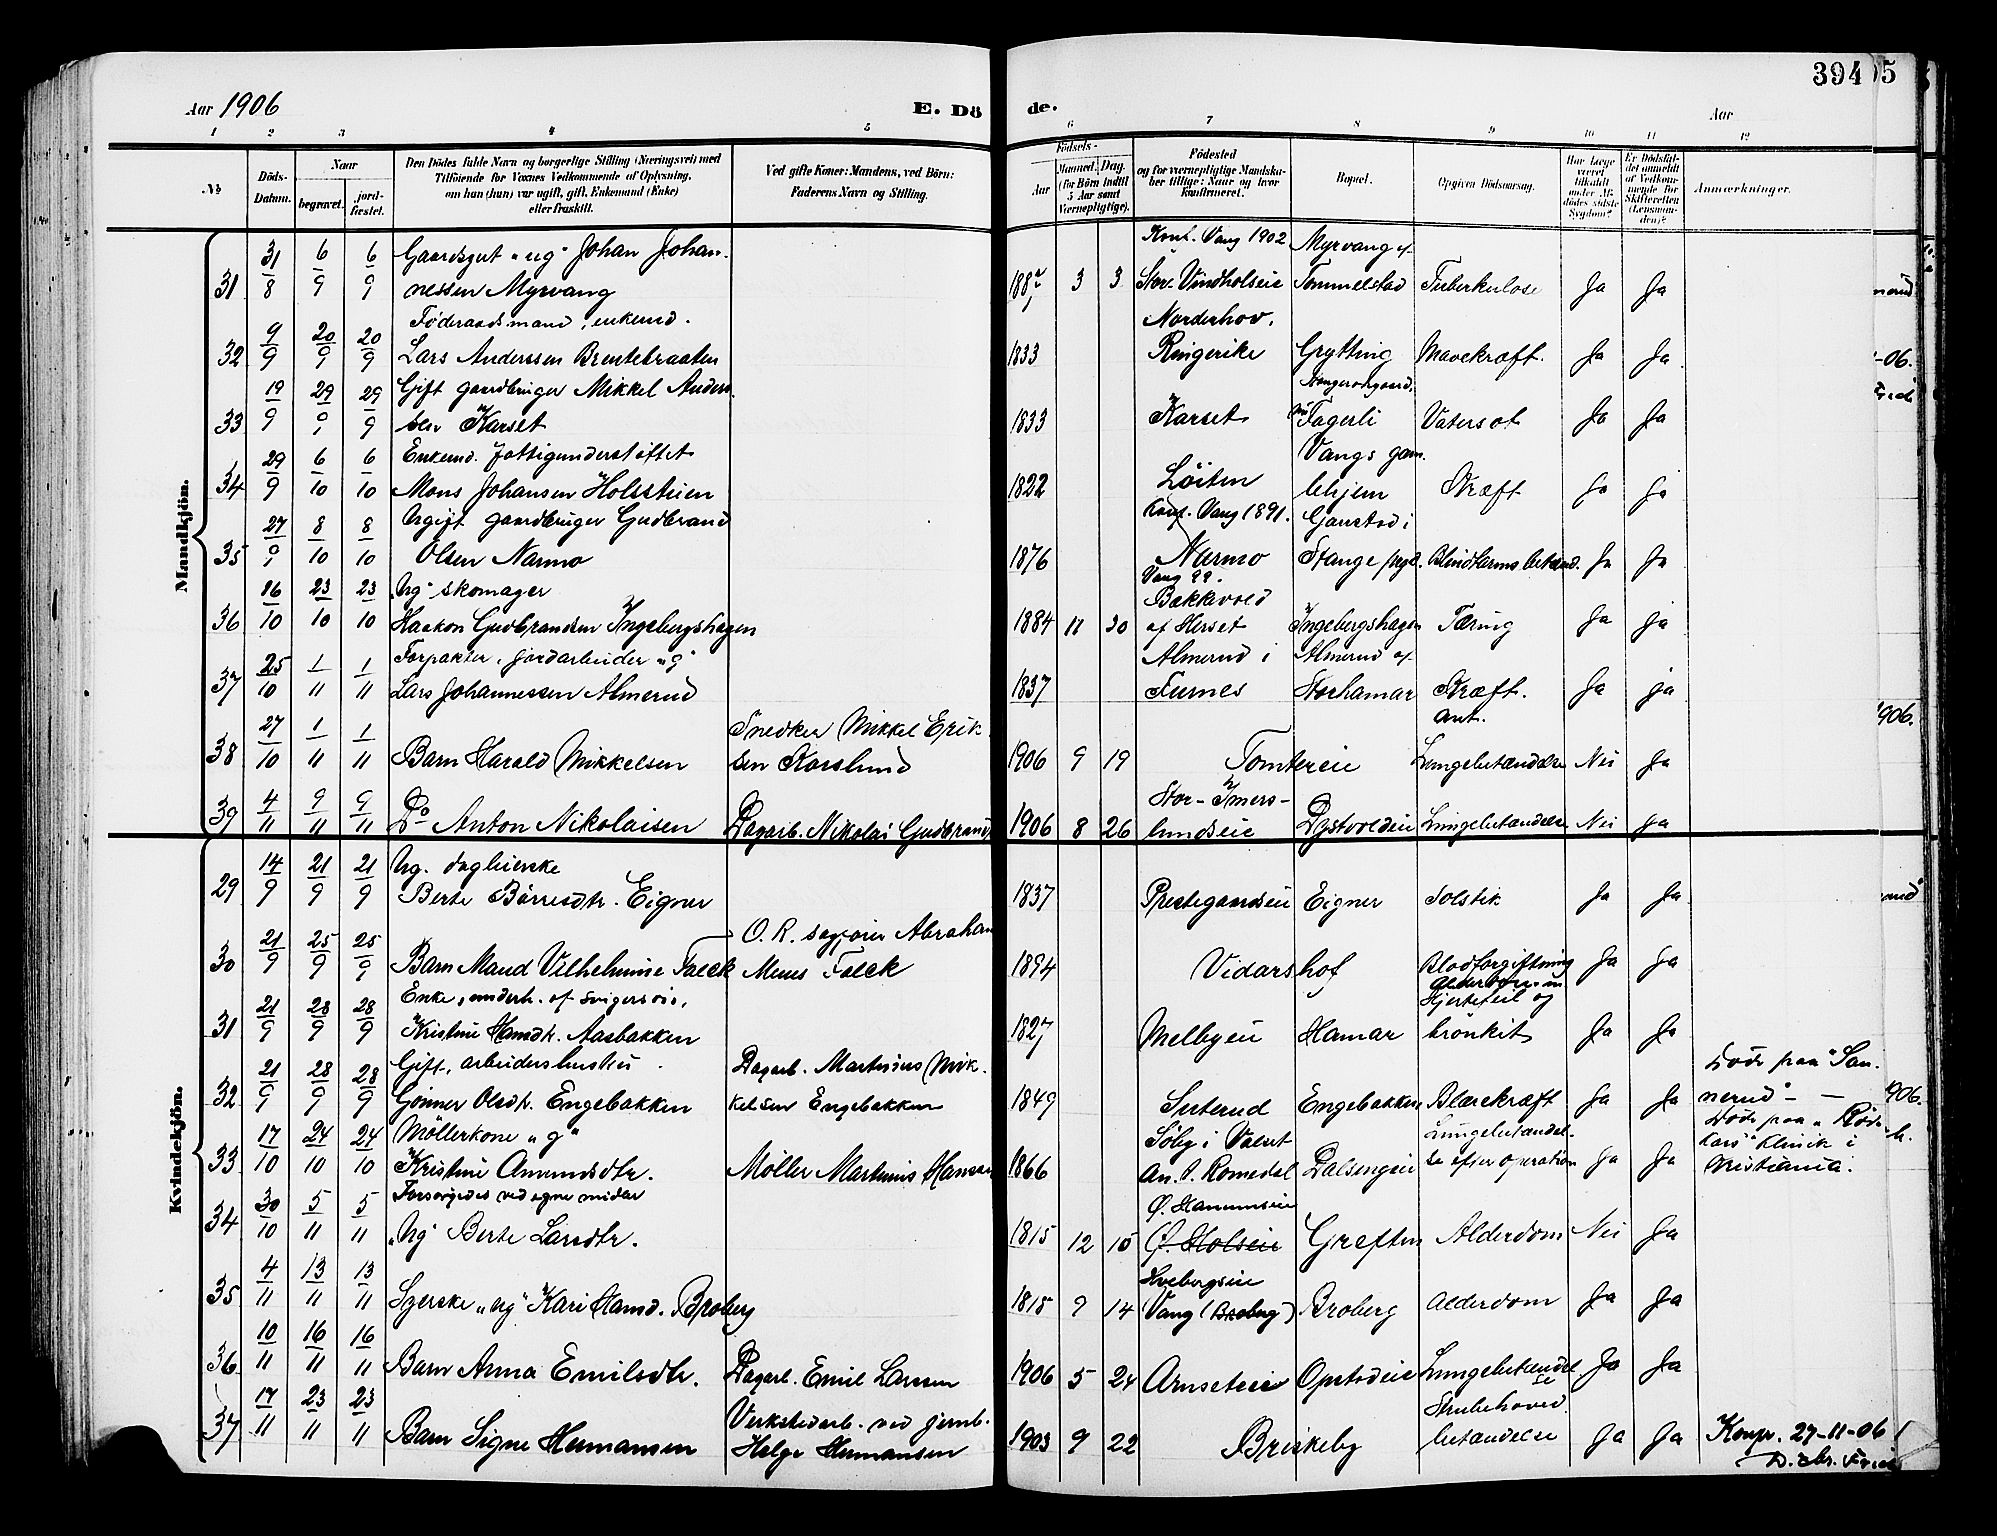 394
5
Aar 1906
E. Dö
de.
Aar
1 2 3 4 5 6 7 8 9 10 11 12
No
Döds-Datum.
Naar
begravet.
jord-fæstet.
Den Dödes fulde Navn og borgerlige Stilling (Næringsvei) med
Tilföiende for Voxnes Vedkommende af Oplysning,
om han (hun) var ugift, gift, Enkemand (Enke)
eller fraskilt.
Ved gifte Koner: Mandens, ved Börn:
Faderens Navn og Stilling.
Födsels-
Aar
Maaned. Dag.
(for Börn indtil
5 Aar samt
Værnepligtige).
Födested
og for værnepligtige Mandska-
ber tillige: Naar og hvor
konfirmeret.
Bopæl.
Opgiven Dödsaarsag.
Har Læge
været
tilkaldt
under Af-
dødes sidste
Sygdom?
Er Dödsfal-
det anmeldt
af Vedkom-
mende for
Skifteretten
(Lensman-
den)?
Anmærkninger.
Mandkjön.
31 6 6 Gaardsgut "ug" Johan Johan- Konf. Vang 1902 Myrvang af
31 8 9 9 nessen Myrvang 188 3 3 Stor-Vindholseie Tommelstad Tuberkulose Ja Ja
9 20 20 Föderaadsmand, enkemd. Norderhov,
32 9 9 9 Lars Anderssen Brentebraaten 1833 Ringerike Grytting Mavekræft. Ja Ja
19 29 29 Gift gaardbruger Mikkel Anders-
33 9 9 9 sen Karset 1833 Karset Fagerli Vatersot Ja Ja
29 6 6 Enkemd. fattigunderstöttet Vangs gam-
34 9 10 10 Mons Johansen Holsteien 1822 Löiten lehjem Kræft Ja Ja
27 8 8 Ugift gaardbruger Gudbrand Konf. Vang 1891. Gaustad i
35 9 10 10 Olsen Narmo 1876 Narmo Stange Blindtarmsbetænd. Ja Ja
16 23 23 "Ug" skomager Vang 99. Bakkevold
36 10 10 10 Haakon Gudbrandsen Ingebergshagen 1884 11 30 af Herset Ingebergshagen Tæring Ja ja
25 1 1 Forpakter, jordarbeider "g" Almerud i Almerud af
37 10 11 11 Lars Johannessen Almerud 1837 Furnes Storhamar Kræft. Ja ja
27 1 1 Snedker Mikkel Erik- ant.
38 10 11 11 Barn Harald Mikkelsen sen Karslund 1906 9 19 Tomtereie Lungebetændelse Nei Ja
4 9 9 Stor-Imers-
39 11 11 11 Do Anton Nikolaisen Dagarb. Nikolai Gudbrands 1906 8 26 lundseie Dystvoldeie Lungebetændelse Nei ja
Kvindekjön.
14 21 21 Ug. dagleierske
29 9 9 9 Berte Börresdtr. Eigner 1837 Prestegaardseie Eigner Solstik Ja Ja
21 25 25 O. R. sagförer Abraham
30 9 9 9 Barn Maud Vilhelmine Falck Meus Falck 1894 Vidarshof Blodforgiftning Ja Ja
21 28 28 Enke, underh. af svigersön, Hjertefeil og
31 9 9 9 Kristine Hansdtr. Aasbakken 1827 Melbyeie Hamar bronkit Ja Ja
21 28 28 Gift, arbeiderhustru Dagarb. Martinius Mik- Död paa "San-
32 9 9 9 Gönner Olsdtr. Engebakken kelsen Engebakken 1849 Suterud Engebakken Blærekræft Ja Ja nerud" -
17 24 24 Möllerkone "g" Söby i Valset Lungebetændel- Död paa "Röde
33 10 10 10 Kristine Amundsdtr. Möller Martinius Hansen 1866 An. P. Romedal Dalsengeie se efter operation Ja Ja Kors" Klinik i Kristiania.
30 5 5 Forsörgedes ved egne midler Ö. Hanumseie
34 10 11 11 "Ug" Berte Larsdtr. 1815 12 15 Ö. Holseie Greften Alderdom Nei Ja
4 13 13 Hvebergseie
35 11 11 11 "ug" Kari Hansd. Broberg 1815 9 14 Vang (Broberg) Broberg Alderdom Ja Ja
10 16 16
36 11 11 11 Barn Anna Emilsdtr. Dagarb. Emil Larssen 1906 5 24 Arnseteie Opstadeie Lungebetændelse Ja Ja
17 23 23 Verkstedarb. ved jernb. Strubehoved-
37 11 11 11 Barn Signe Hermansen Helge Hermansen 1903 9 22 Briskeby betændelse Ja Ja Konfr. 27-11-06